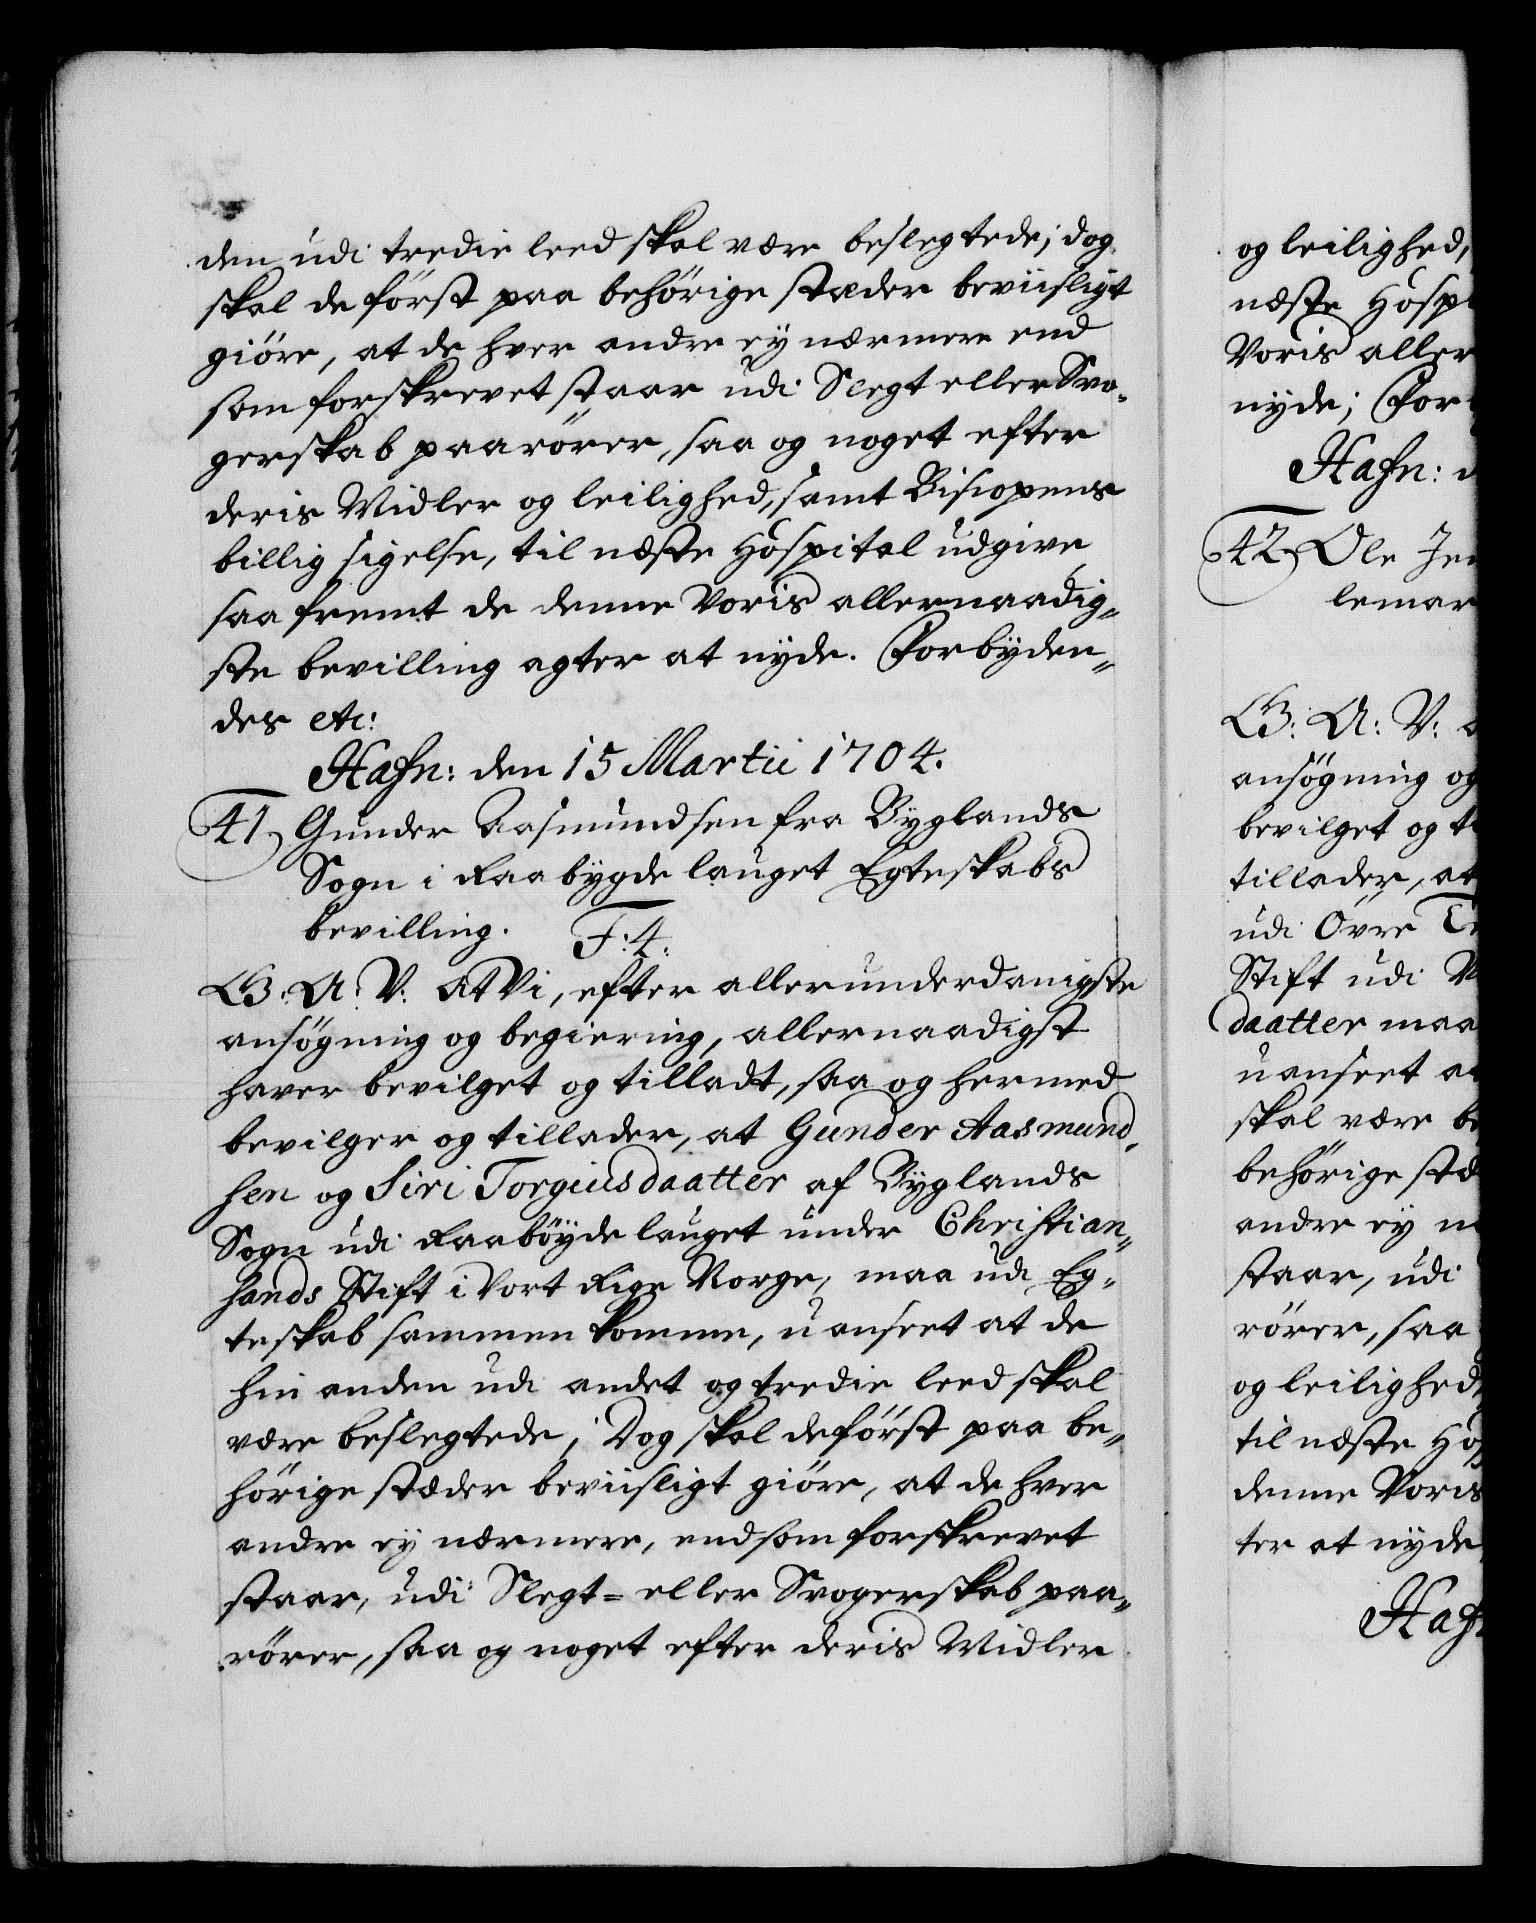 den udi tredie leed skal være beslegtede; dog
skal de först paa behörige stæder beviisligt
giöre, at de hver andre ey nærmere end
som forskrevet staar udi Slegt eller Svo-
gerskab paarörer, saa og noget efter
deris Midler og leilighed, samt Bispens
billig sigelse, til næste Hospital udgive
saa fremt de denne Voris allernaadig-
ste bevilling agter at nyde. Forbyden-
des etc:
Hafn: den 15 Martii 1704.
41 Gunder Aasmundsen fra Byglands
Sogn i Raabygde lauget Egteskabs
bevilling. F: 4.
G: A: V: At Vi, efter allerunderdanigste
ansögning og begiering, allernaadigst
haver bevilget og tilladt, saa og hermed
bevilger og tillader, at Gunder Aasmund-
sen og Siri Torgiusdaatter af Byglands
Sogn udi Raaböyde lauget under Christian-
sands Stift i Vort Rige Norge, maa udi Eg-
teskab sammen komme, uanseet at de
hin anden udi andet og tredie leed skal
være beslegtede; Dog skal de först paa be-
hörige stæder beviisligt giöre, at de hver
andre ey nærmere, end som forskrevet
staar, udi Slegt= eller Svogerskab paa-
rörer, saa og noget efter deris Midler
og leilighed,
næste Hospi
Voris aller
nyde; For
Hafn: d
42 Ole Jen
lemar
G: A: V: a
ansögning og
bevilget og ti
tillader, at
udi Övre Te
Stift udi V
daatter maa
uanseet at
skal være be
behörige stæ
andre ey næ
staar, udi
rörer, saa
og leilighed,
til næste Hos
denne Voris
ter at nyde
Haf